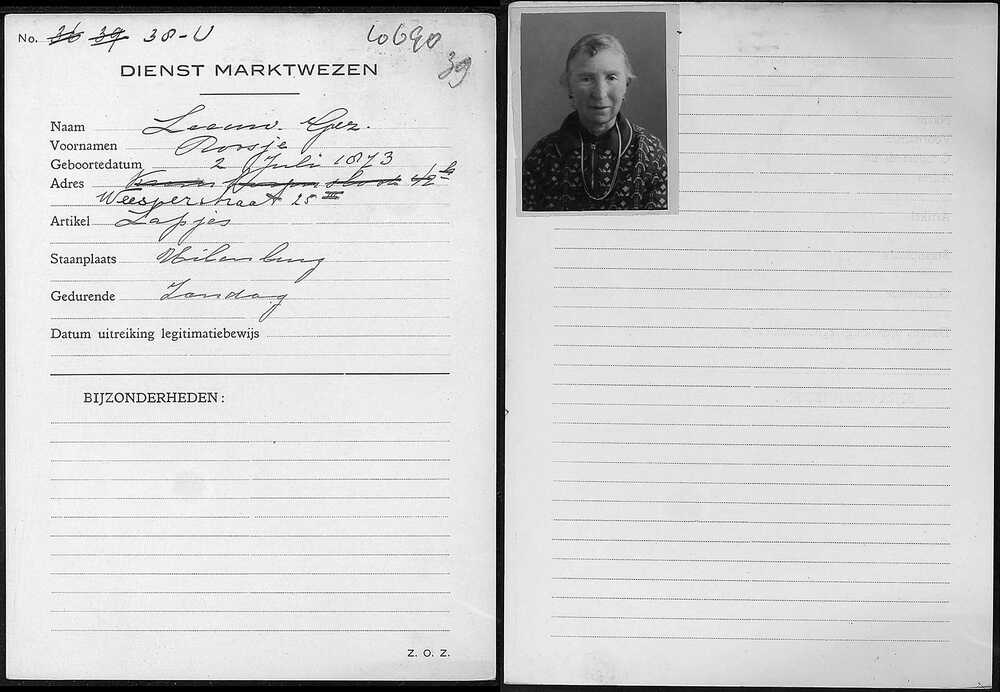 No. 36 39 38-U
10690
39
DIENST MARKTWEZEN
Naam Leeuw. Gez.
Voornamen Roosje
Geboortedatum 2 Juli 1873
Adres
Weesperstraat 25 III
Artikel Lapjes
Staanplaats Uilenburg
Gedurende Zondag
Datum uitreiking legitimatiebewijs
BIJZONDERHEDEN:
Z. O. Z.